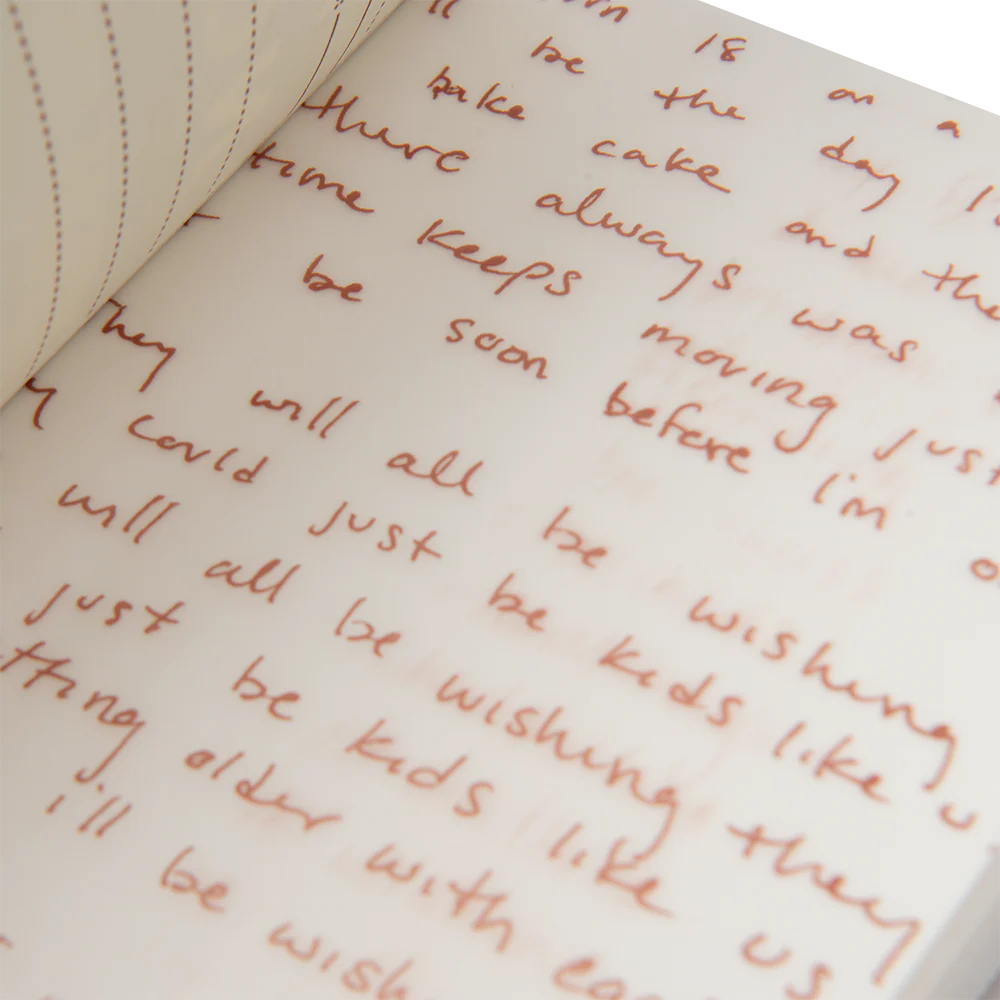 18 on a
'll be the day I
bake cake and the
there always was
time keeps moving just
be soon before i'm o
They will all be wishing
y could just be kids like u
will all be wishing they
just be kids like us
tting older with eac
i'll be wish